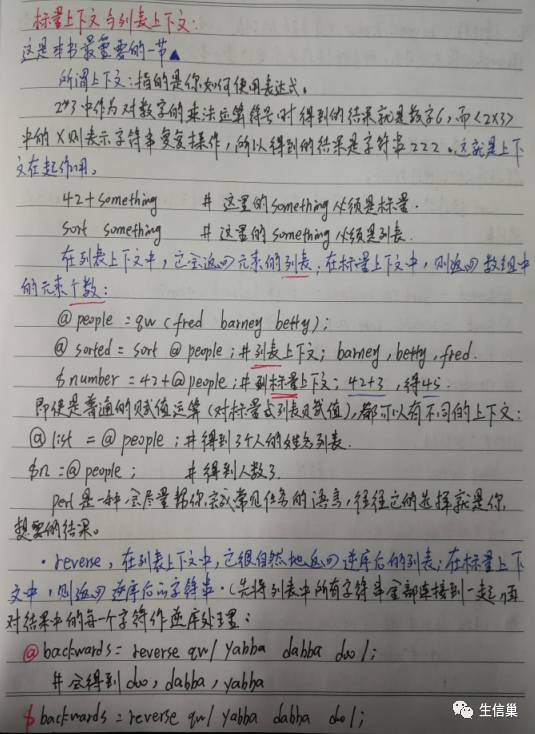 标量上下文与列表上下文:
这是本书最重要的一节▲
所谓上下文:指的是你如何使用表达式。
2*3中作为对数字的乘法运算符号时得到的结果就是数字6,而<2X3>
中的X则表示字符串重复操作,所以得到的结果是字符串222。这就是上下
文在起作用。
42+something #这里的something必须是标量.
sort something #这里的something必须是列表.
在列表上下文中,它会返回元素的列表;在标量上下文中,则返回数组中
的元素个数:
@people=qw(fred barney betty);
@sorted=sort @people;#列表上下文; barney,betty,fred.
$number=42+@people;#标量上下文;42+3,得45.
即使是普通的赋值运算(对标量或列表赋值),都可以有不同的上下文:
@list = @people;#得到3个人的姓名列表.
$n=@people; #得到人数3.
perl是一种会尽量帮你完成常见任务的语言,往往它的选择就是你
想要的结果。
·reverse,在列表上下文中,它很自然地返回逆序后的列表;在标量上下
文中,则返回逆序后的字符串.(先将列表中所有字符串全部连接到一起,再
对结果中的每一个字符作逆序处理:
@backwards=reverse qw/ yabba dabba doo/;
#会得到doo,dabba,yabba
$backwards=reverse qw/ yabba dabba doo/;
生信巢